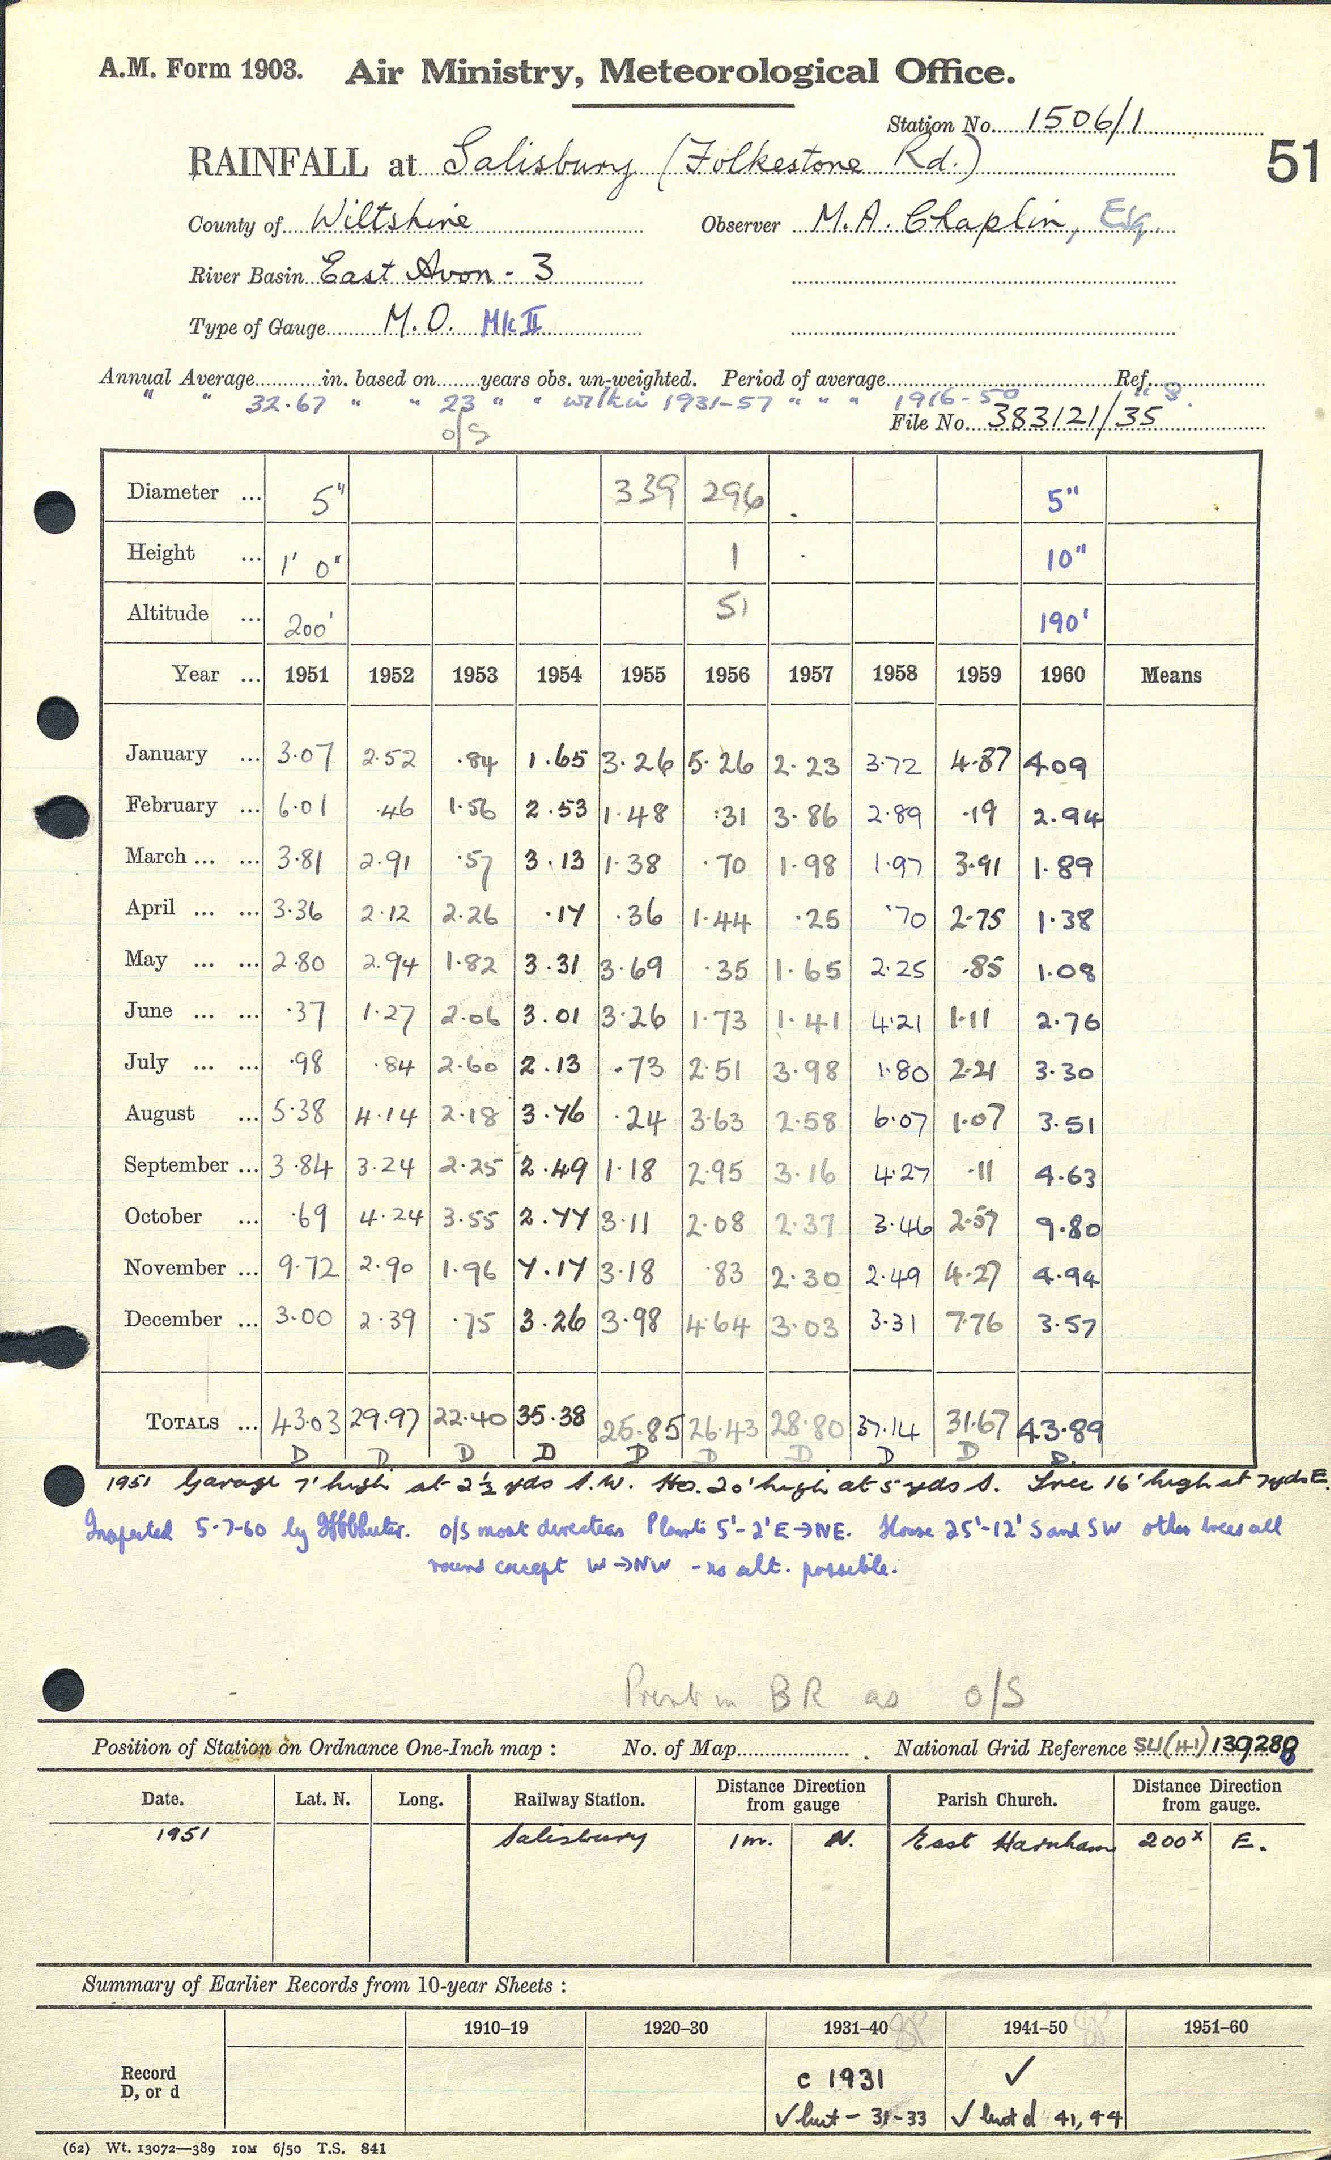 A.M. Form 1903. Air Ministry, Meteorological Office.
Station No. 1506/1
RAINFALL at Salisbury (Folkestone Rd.) 51
County of Wiltshire Observer M.A. Chaplin, Esq.
River Basin East Avon - 3
Type of Gauge M.O. Mk II
Annual Average in. based on years obs. un-weighted. Period of average Ref.
" " 32.67 " " 23 " " within 1931-57 " " " 1916-50 " 8.
o/s File No. 383121/35
Diameter ... 5" 339 296 5"
Height ... 1' 0" 1 10"
Altitude ... 200' 51 190'
Year ... 1951 1952 1953 1954 1955 1956 1957 1958 1959 1960 Means
January ... 3.07 2.52 .84 1.65 3.26 5.26 2.23 3.72 4.87 4.09
February ... 6.01 .46 1.56 2.53 1.48 .31 3.86 2.89 .19 2.94
March ... ... 3.81 2.91 .57 3.13 1.38 .70 1.98 1.97 3.91 1.89
April ... ... 3.36 2.12 2.26 .17 .36 1.44 .25 .70 2.75 1.38
May ... ... 2.80 2.94 1.82 3.31 3.69 .35 1.65 2.25 .85 1.08
June ... ... .37 1.27 2.06 3.01 3.26 1.73 1.41 4.21 1.11 2.76
July ... ... .98 .84 2.60 2.13 .73 2.51 3.98 1.80 2.21 3.30
August ... 5.38 4.14 2.18 3.76 .24 3.63 2.58 6.07 1.07 3.51
September ... 3.84 3.24 2.25 2.49 1.18 2.95 3.16 4.27 .11 4.63
October ... .69 4.24 3.55 2.77 3.11 2.08 2.37 3.46 2.57 9.80
November ... 9.72 2.90 1.96 7.17 3.18 .83 2.30 2.49 4.27 4.94
December ... 3.00 2.39 .75 3.26 3.98 4.64 3.03 3.31 7.76 3.57
TOTALS ... 43.03 29.97 22.40 35.38 25.85 26.43 28.80 37.14 31.67 43.89
D D D D D D D D D D
1951 Garage 7' high at 2½ yds S.W. Ho. 20' high at 5 yds S. Tree 16' high at 7 yds E.
Inspected 5-7-60 by o/s most directions Plants 5'-2' E→NE. House 25'-12' S and SW other trees all
round except W→NW - no alt. possible.
Print in BR as o/s
Position of Station on Ordnance One-Inch map : No. of Map National Grid Reference SU(41) 139288
Date. Lat. N. Long. Railway Station. Distance Direction from gauge Parish Church. Distance Direction from gauge.
1951 Salisbury 1 m. N. East Harnham 200ˣ E.
Summary of Earlier Records from 10-year Sheets :
1910–19 1920–30 1931–40 1941–50 1951–60
Record c 1931 ✓
D, or d ✓ but - 31-33 ✓ but d 41, 44
(62) Wt. 13072—389 10M 6/50 T.S. 841